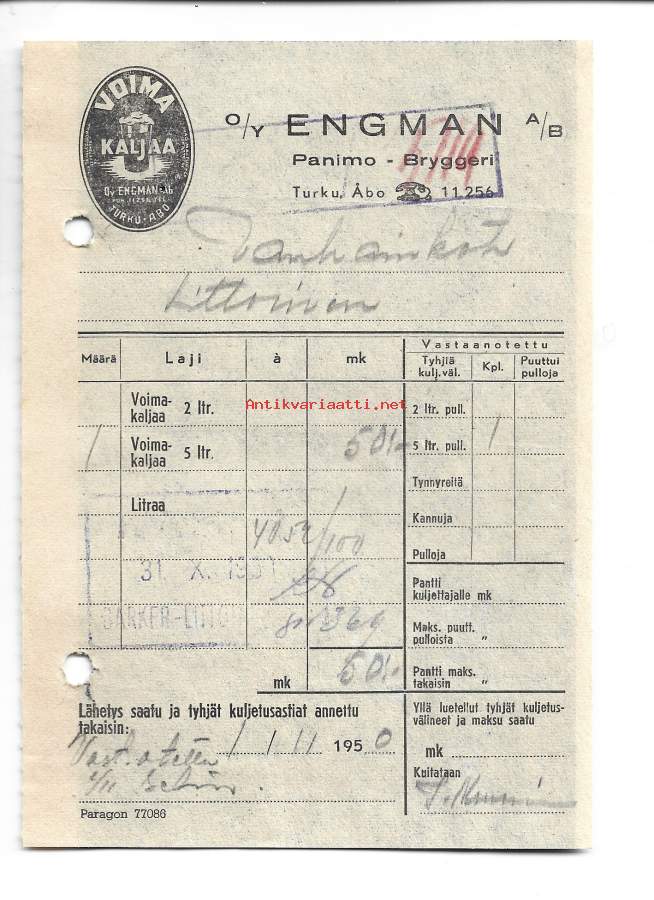 VOIMA
KALJAA
OY ENGMAN AB
TURKU - ÅBO
O/Y ENGMAN A/B
Panimo - Bryggeri
Turku, Åbo 11 256
Vanhainkoti
Littoinen
Määrä Laji à mk
Vastaanotettu
Tyhjiä kulj.väl. Kpl. Puuttui pulloja
Voima-kaljaa 2 ltr.
2 ltr. pull.
1 Voima-kaljaa 5 ltr. 50/-
5 ltr. pull. 1
Tynnyreitä
Litraa
Kannuja
Pulloja
31. X.
BARKER-LITTO
Pantti kuljettajalle mk
Maks. puutt. pulloista "
mk 50/-
Pantti maks. takaisin "
Lähetys saatu ja tyhjät kuljetusastiat annettu
takaisin:
1/11 1950
Yllä luetellut tyhjät kuljetus-
välineet ja maksu saatu
mk
Kuitataan
Paragon 77086
Antikvariaatti.net